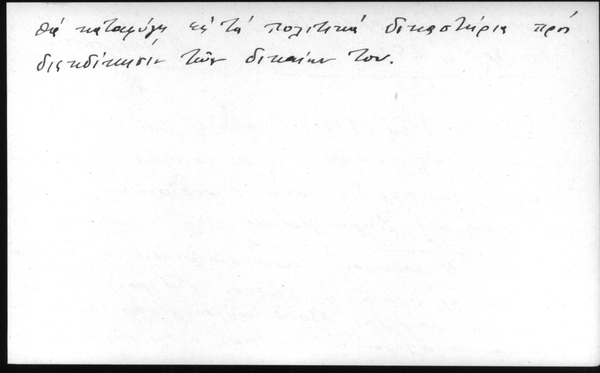 θά καταφύγη εἰς τά πολιτικά δικαστήρια πρός
διεκδίκησιν τῶν δικαίων του.